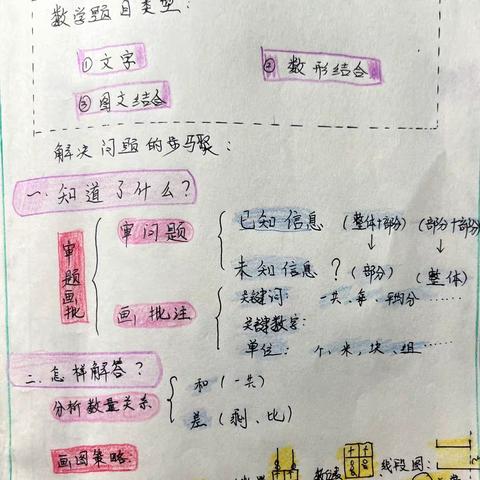 数学题目类型：
①文字 ②数形结合
③图文结合
解决问题的步骤：
一、知道了什么？
审题画批
审问题
已知信息 (整体+部分) (部分+部分)
未知信息？ (部分) (整体)
画,批注
关键词： 一共、每、平均分……
关键数字：
单位： 个、米，块、组……
二、怎样解答？
分析数量关系
和 (一共)
差 (剩、比)
画图策略：
线段图：